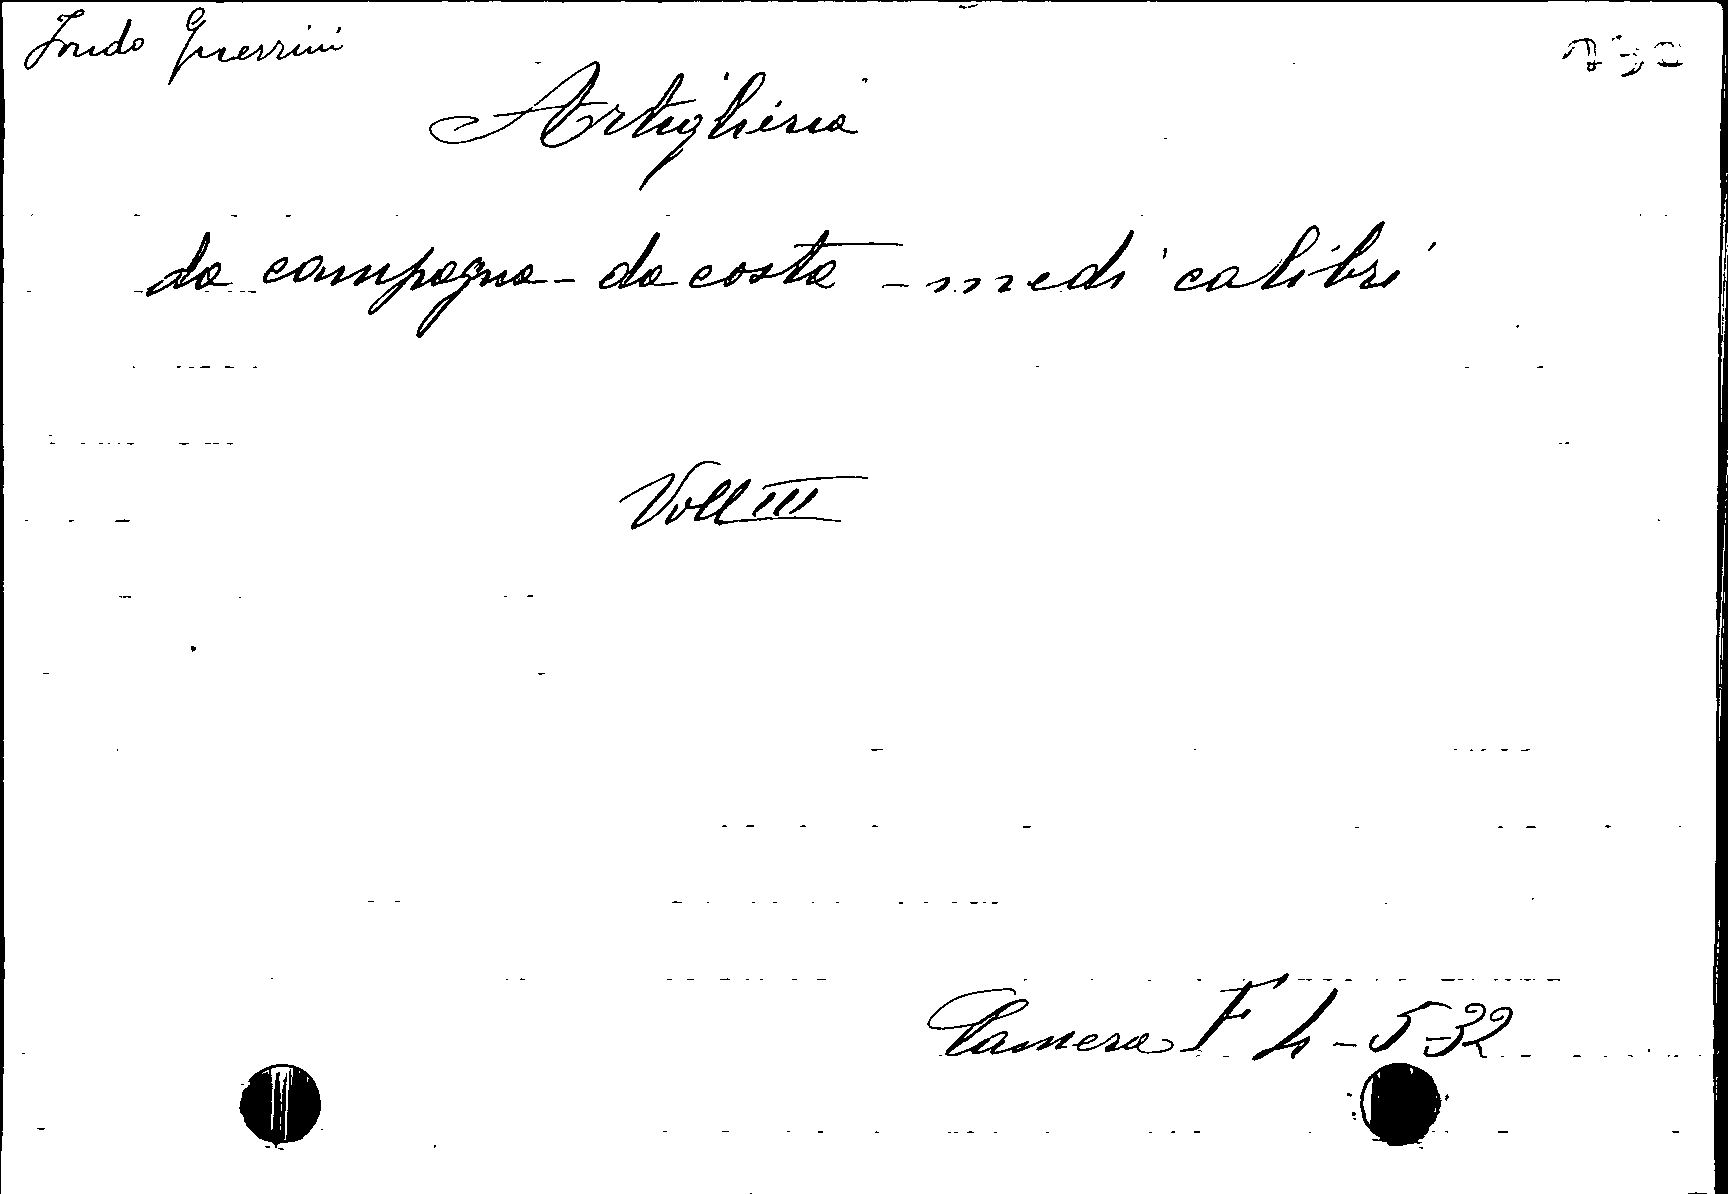 Fondo Guerrini
Artiglieria
da campagna - da costa - medi calibri
Voll III
Camera F 4 - 5-32